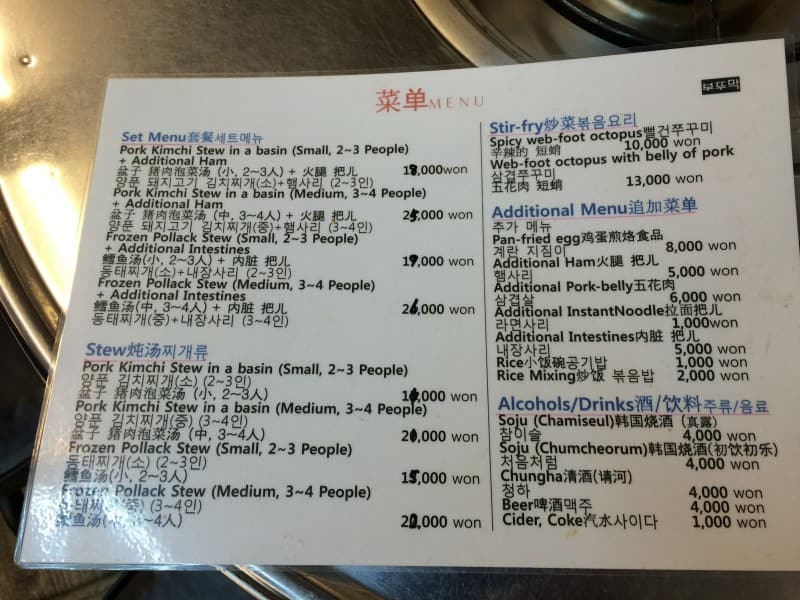 菜单MENU
Set Menu套餐세트메뉴
Pork Kimchi Stew in a basin (Small, 2~3 People)
+ Additional Ham
盆子 猪肉泡菜汤 (小, 2~3人) + 火腿 把儿 won
양푼 돼지고기 김치찌개(소)+햄사리 (2~3인)
Pork Kimchi Stew in a basin (Medium, 3~4 People)
+ Additional Ham
盆子 猪肉泡菜汤 (中, 3~4人) + 火腿 把儿 25,000 won
양푼 돼지고기 김치찌개(중)+햄사리 (3~4인)
Frozen Pollack Stew (Small, 2~3 People)
+ Additional Intestines
鳕鱼汤(小, 2~3人) + 内脏 把儿 19,000 won
동태찌개(소)+내장사리 (2~3인)
Frozen Pollack Stew (Medium, 3~4 People)
+ Additional Intestines
鳕鱼汤(中, 3~4人) + 内脏 把儿 26,000 won
동태찌개(중)+내장사리 (3~4인)
Stew炖汤찌개류
Pork Kimchi Stew in a basin (Small, 2~3 People)
양푼 김치찌개(소) (2~3인)
盆子 猪肉泡菜汤 (小, 2~3人) won
Pork Kimchi Stew in a basin (Medium, 3~4 People)
양푼 김치찌개(중) (3~4인)
盆子 猪肉泡菜汤 (中, 3~4人) won
Frozen Pollack Stew (Small, 2~3 People)
동태찌개(소) (2~3인)
鳕鱼汤(小, 2~3人) 15,000 won
Frozen Pollack Stew (Medium, 3~4 People)
(3~4인)
22,000 won
Stir-fry炒菜볶음요리
Spicy web-foot octopus뻘건쭈꾸미
辛辣的 短蛸 10,000 won
Web-foot octopus with belly of pork
삼겹쭈꾸미
五花肉 短蛸 13,000 won
Additional Menu追加菜单
추가 메뉴
Pan-fried egg鸡蛋煎烙食品
계란 지짐이 8,000 won
Additional Ham火腿 把儿
햄사리 5,000 won
Additional Pork-belly五花肉
삼겹살 6,000 won
Additional InstantNoodle拉面把儿
라면사리 1,000won
Additional Intestines内脏 把儿
내장사리 5,000 won
Rice小饭碗공기밥 1,000 won
Rice Mixing炒饭 볶음밥 2,000 won
Alcohols/Drinks酒/饮料주류/음료
Soju (Chamiseul)韩国烧酒 (真露)
참이슬 4,000 won
Soju (Chumcheorum)韩国烧酒(初饮初乐)
처음처럼 4,000 won
Chungha清酒(请河)
청하 4,000 won
Beer啤酒맥주 4,000 won
Cider, Coke汽水사이다 1,000 won